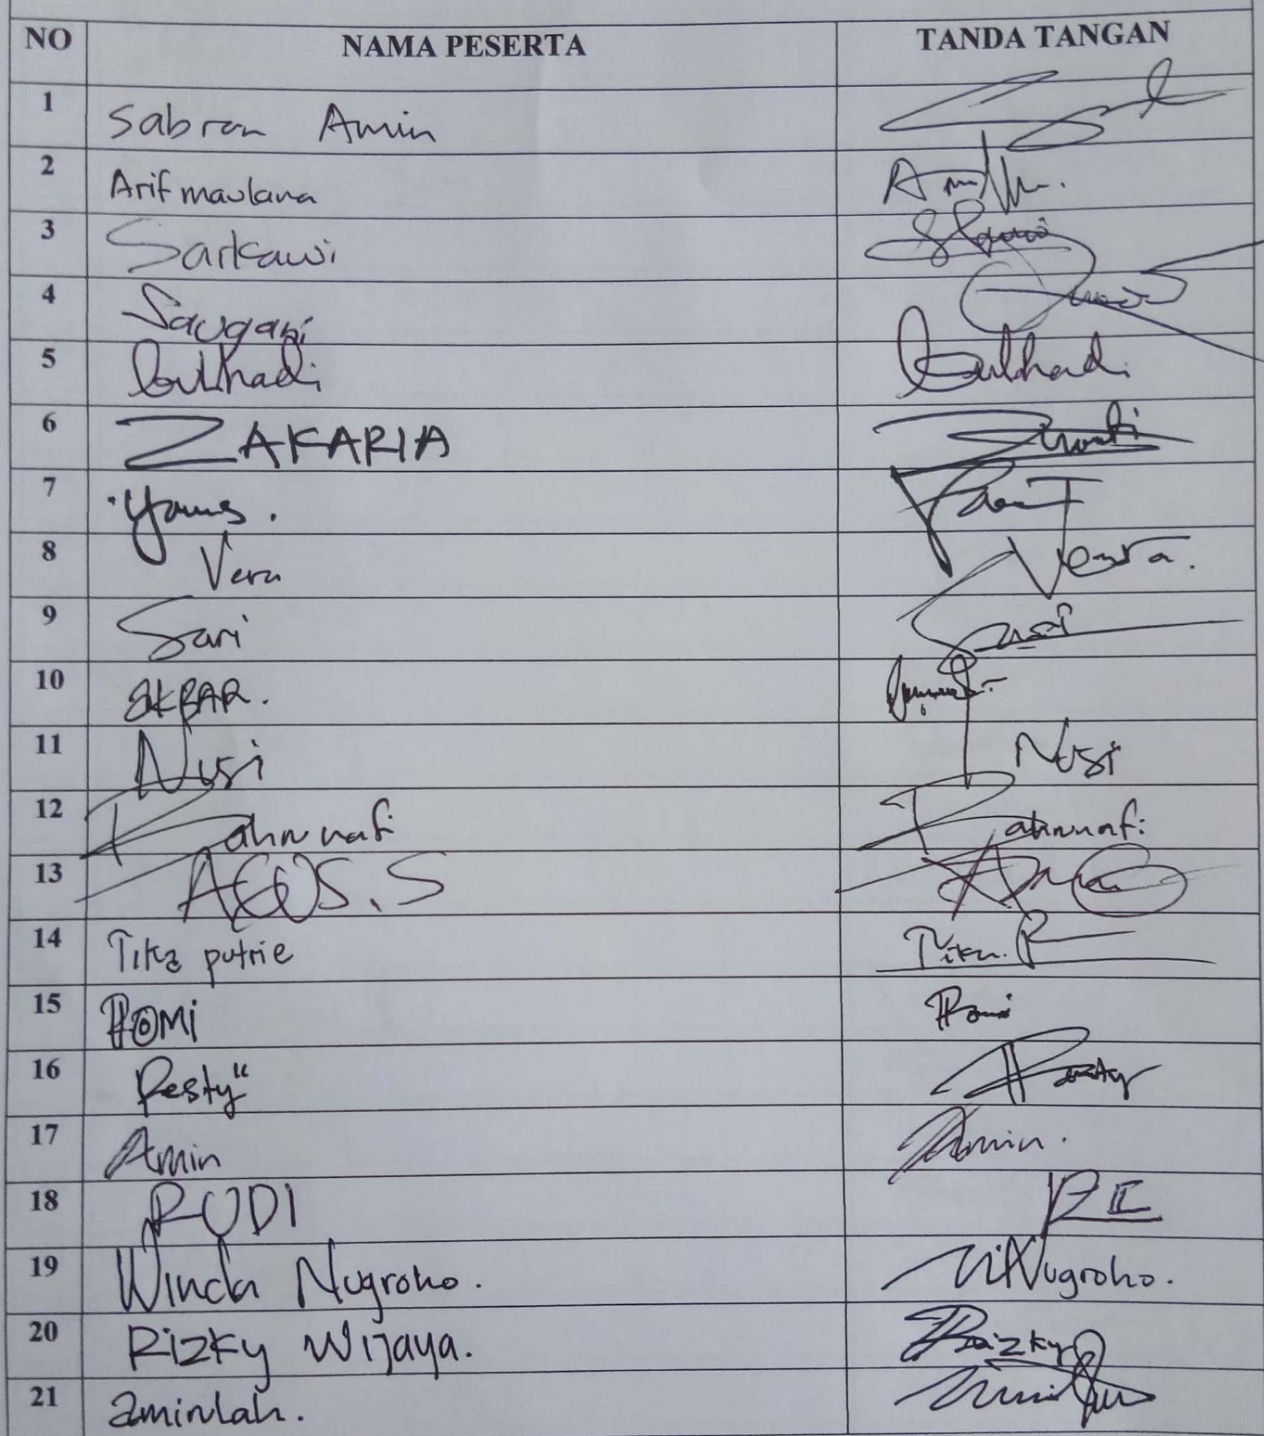 NO NAMA PESERTA TANDA TANGAN
1 Sabran Amin
2 Arif maulana
3 Sarkawi
4 Saugani
5 Gulhadi Gulhadi
6 ZAKARIA
7 Yanus.
8 Vera Vera.
9 Sari Sari
10 AKBAR.
11 Nusi Nusi
12 Rahmnafi Rahmnafi
13 AGUS.S
14 Tika putrie Tika.P
15 ROMI Romi
16 Resty" Resty
17 Amin Amin.
18 RUDI
19 Winda Nugroho. Nugroho.
20 Rizky Wijaya. Rizky
21 aminlah.